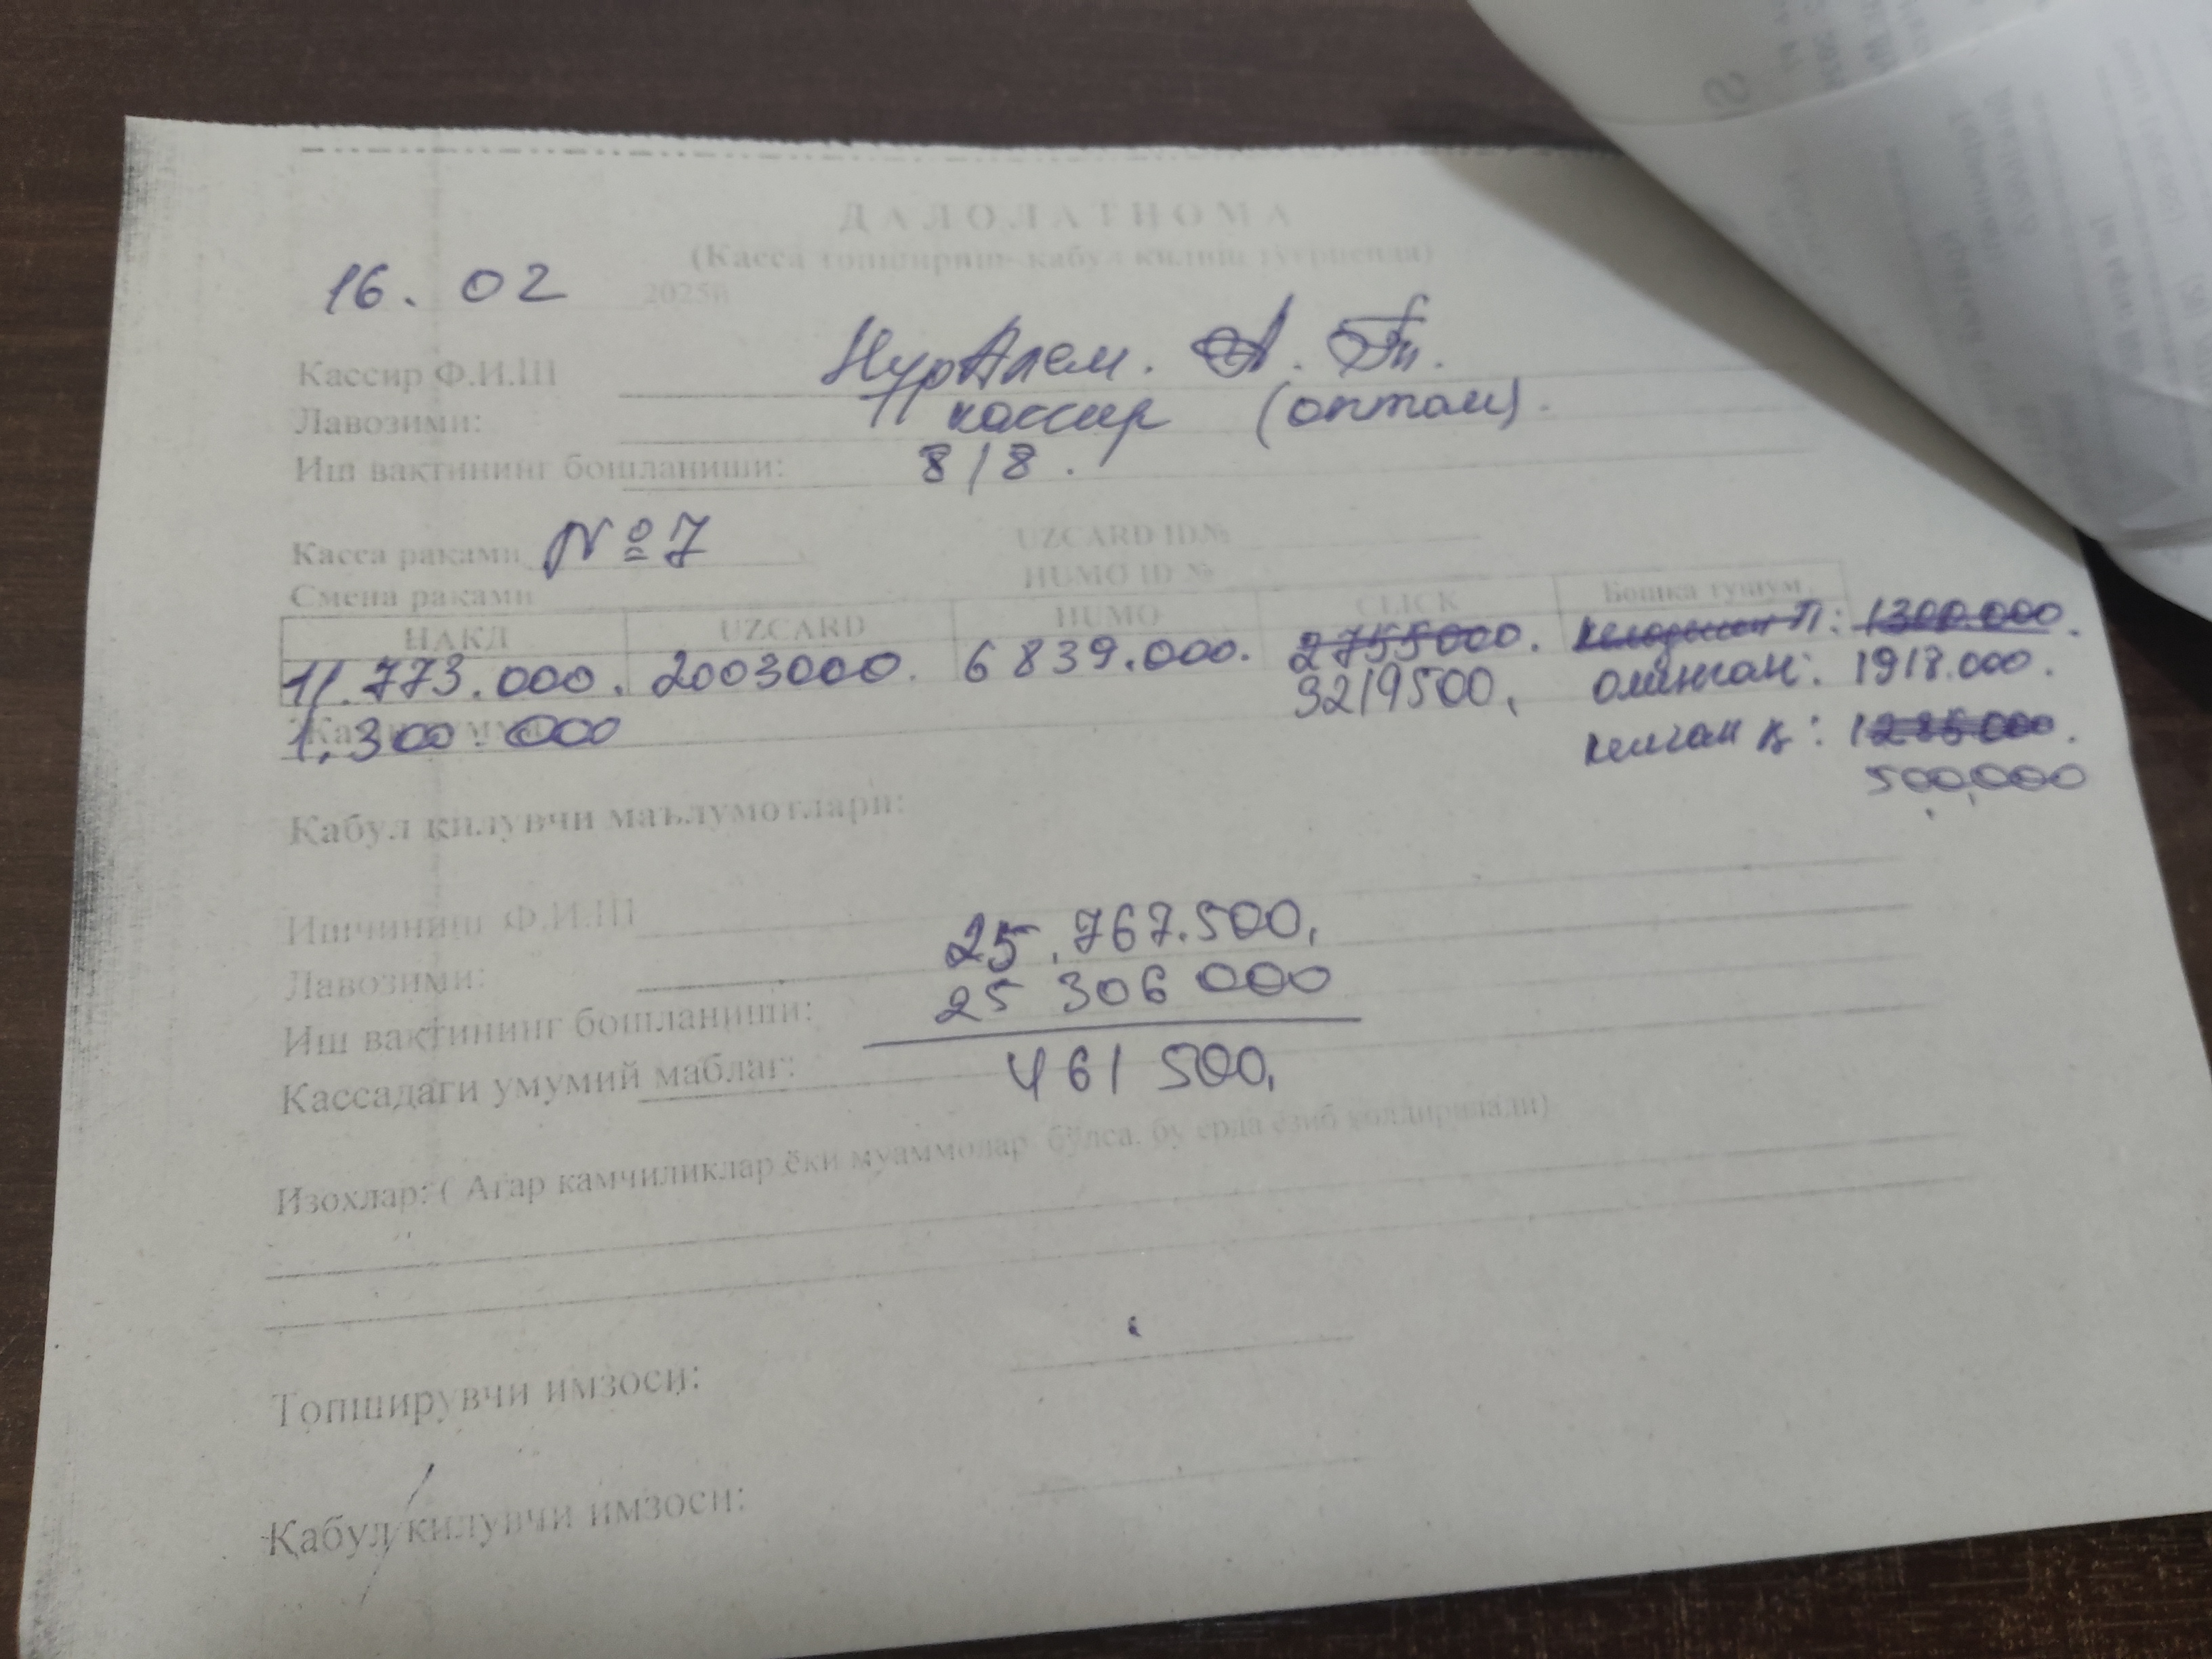 ДАЛОЛАТНОМА
(Касса топшириш- кабул килиш тўғрисида)
16. 02 2025й
Кассир Ф.И.Ш НурАлем. А.
Лавозими: кассир (оптом).
Иш вақтининг бошланиши: 8/8.
Касса рақами №7 UZCARD ID№
Смена рақами HUMO ID №
НАКД UZCARD HUMO CLICK Бошка тушум
11.773.000. 2003000. 6 839.000. 2755000. П: 1300.000.
3219500, олинган: 1918.000.
1.300.000 келган қ: 1285000.
500,000
Қабул қилувчи маълумотлари:
Ишчининг Ф.И.Ш
25.767.500,
Лавозими:
25 306 000
Иш вақтининг бошланиши:
Кассадаги умумий маблағ: 461 500,
Изохлар: ( Агар камчиликлар ёки муаммолар бўлса, бу ерда ёзиб қолдирилади)
Топширувчи имзоси:
Қабул қилувчи имзоси: